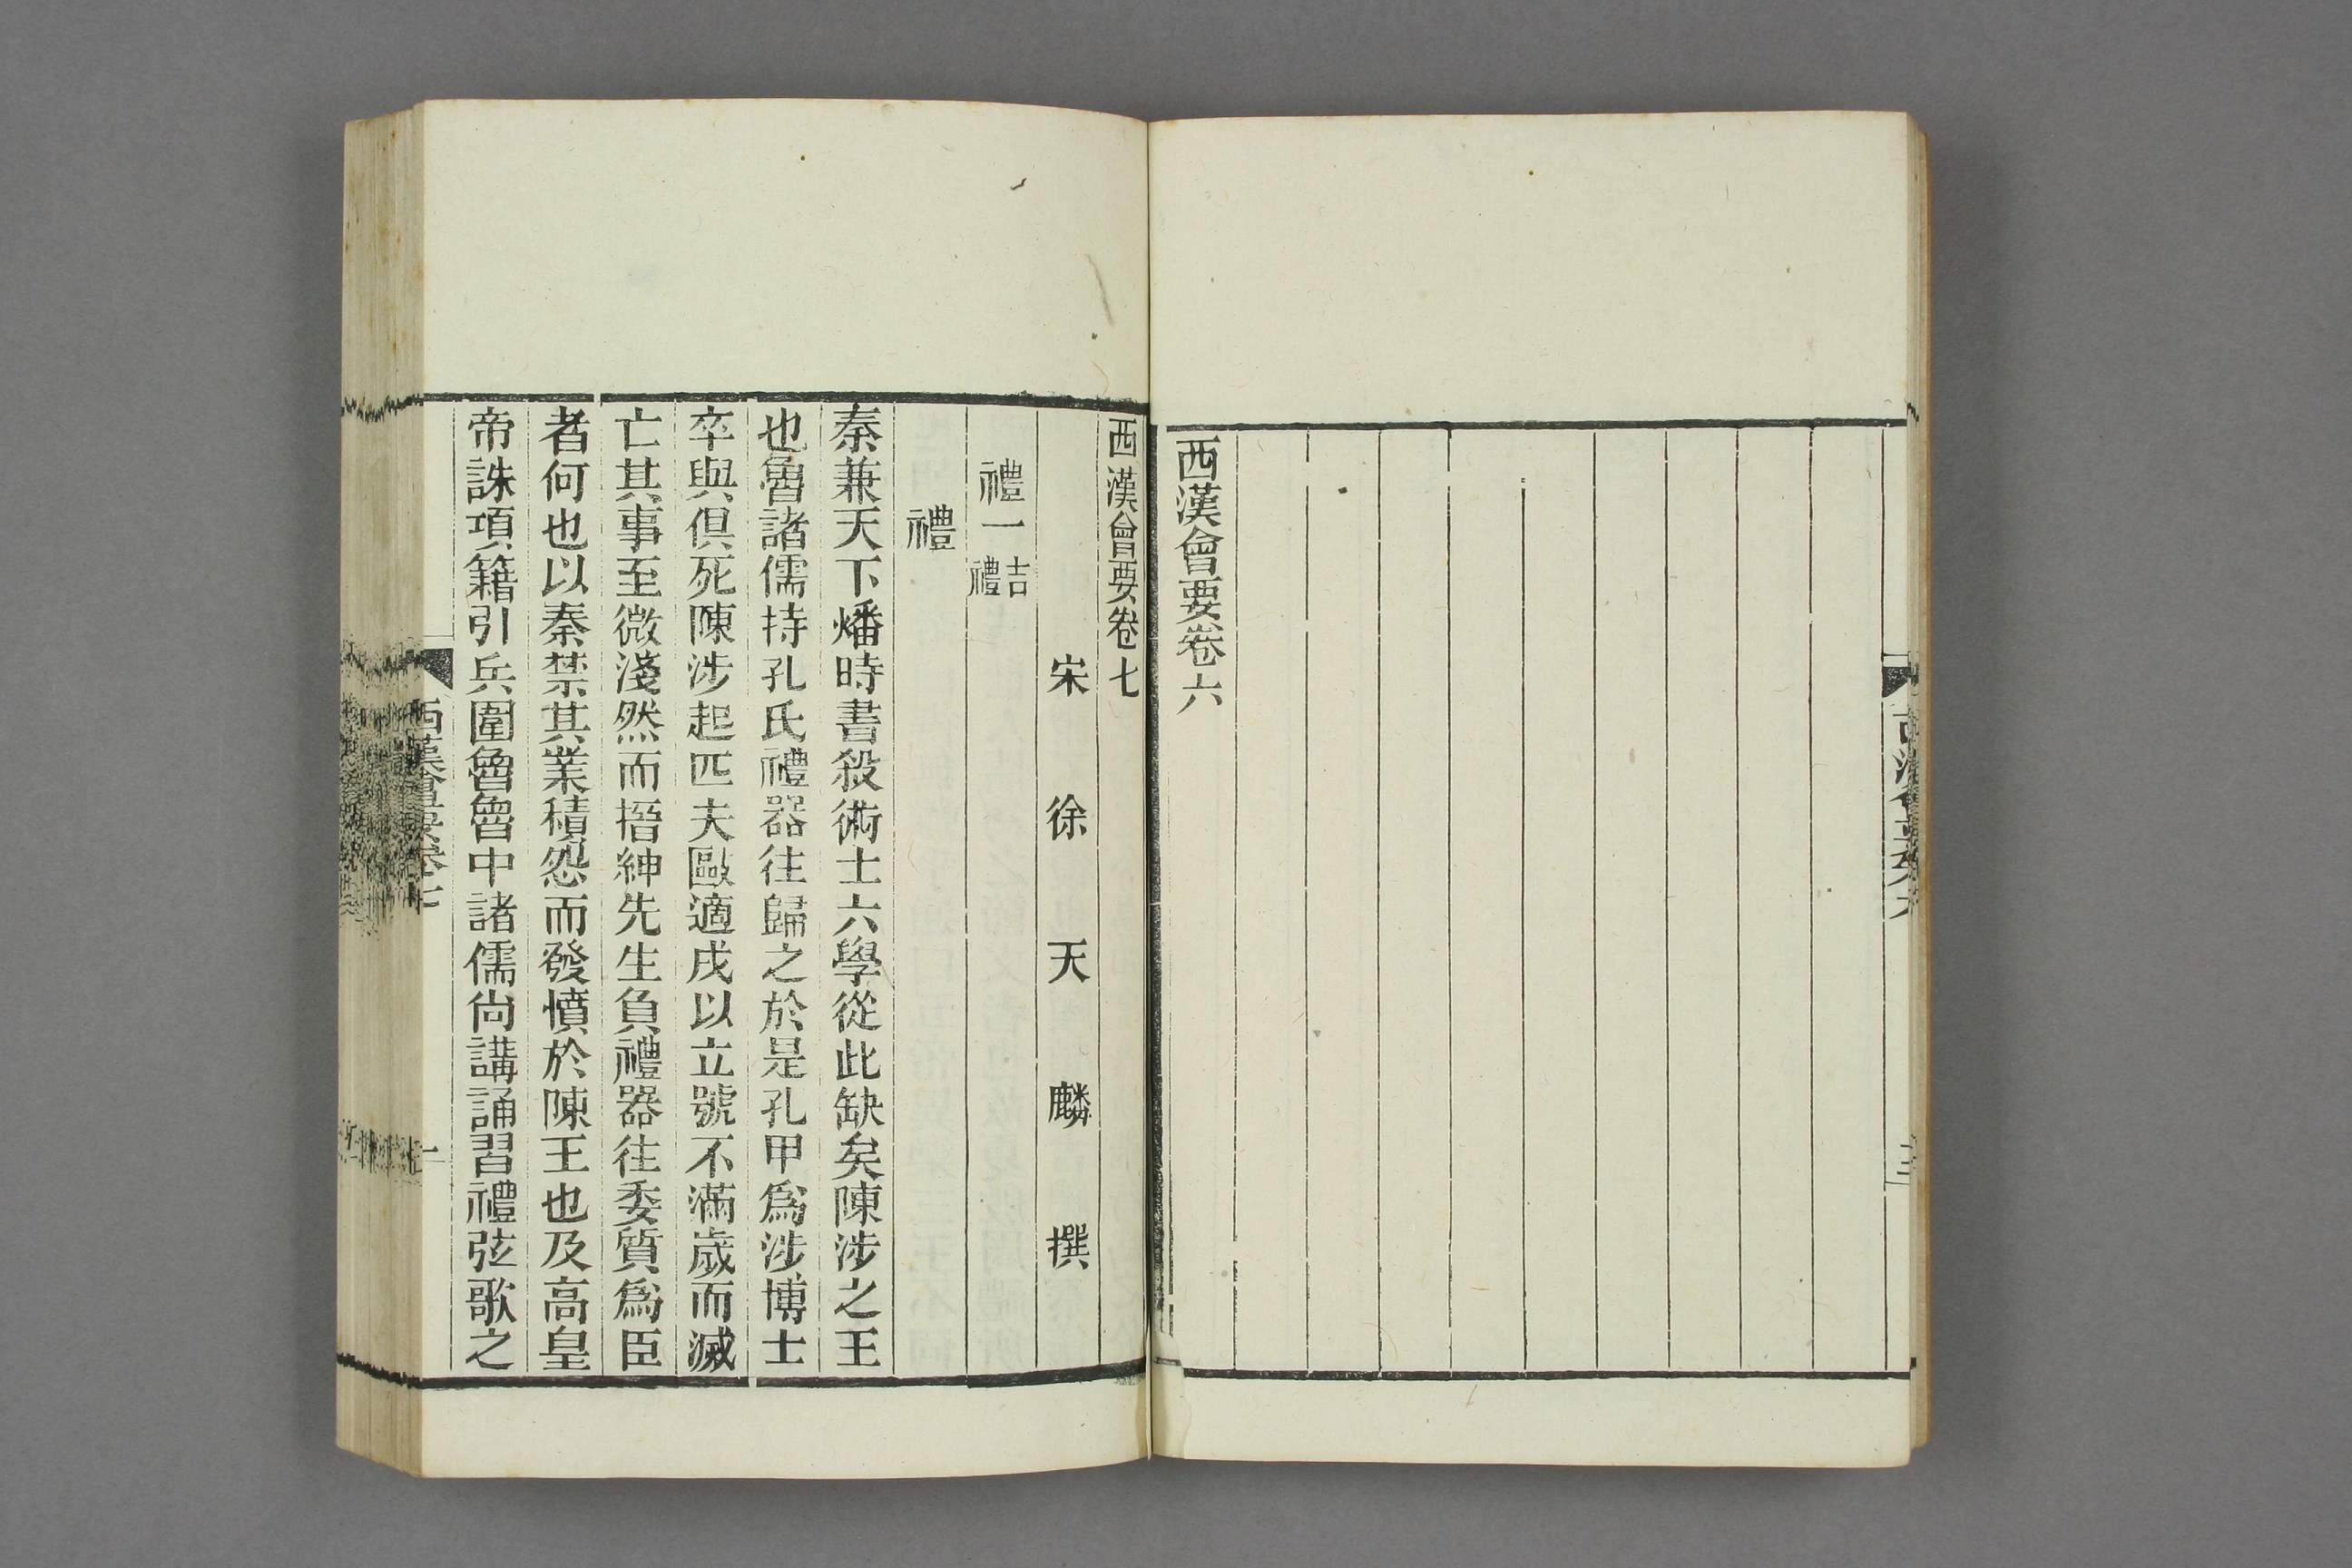 西漢會要卷六
西漢會要卷七
宋徐天麟撰
禮一吉禮
禮
秦兼天下燔時書殺術士六學從此缺矣陳涉之王
也魯諸儒持孔氏禮器往歸之於是孔甲爲涉博士
卒與俱死陳涉起匹夫敺適戍以立號不滿歲而滅
亡其事至微淺然而搢紳先生負禮器往委質爲臣
者何也以秦禁其業積怨而發憤於陳王也及高皇
帝誅項籍引兵圍魯魯中諸儒尙講誦習禮弦歌之
西漢會要卷七
一